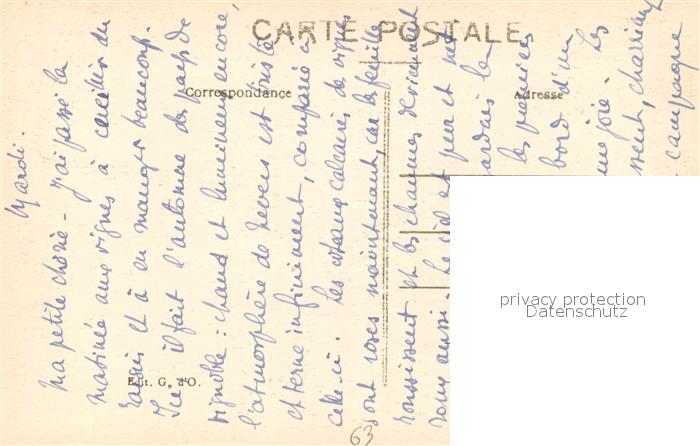 CARTE POSTALE
Correspondance
Adresse
Mardi.
Ma petite chérie - J'ai passé la
matinée aux vignes à cueillir du
raisin et à en manger beaucoup.
Ici il fait l'automne des pays de
vignoble : chaud et lumineux encore,
l'atmosphère de Nevers est triste
et terne infiniment, comparée à
celle-ci. Les coteaux calcaires de vignes
sont roses maintenant, car les feuilles
roussissent et les chaumes deviennent
roux aussi. Le ciel est pur et
les
bord d'un
joie. Les
campagne
Edit. G. d'O.
63
privacy protection
Datenschutz